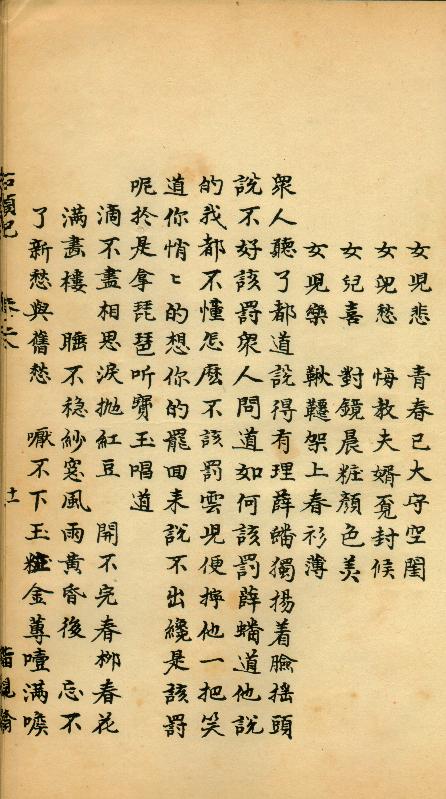 女兒悲　青春已大守空閨
女兒愁　悔敎夫婿覔封侯
女兒喜　對鏡晨粧顏色美
女兒樂　鞦韆架上春衫薄
衆人聽了都道說得有理薛蟠獨揚着臉搖頭
說不好該罰衆人問道如何該罰薛蟠道他說
的我都不懂怎麽不該罰雲兒便擰他一把笑
道你悄〻的想你的罷回来說不出纔是該罰
呢扵是拿琵琶听寳玉唱道
滴不盡相思淚抛紅豆　開不完春柳春花
滿畵樓　睡不穏紗窓風雨黃昏後　忘不
了新愁與舊愁　嚥不下玉粒金蓴噎滿喉
石頭記　十一　脂硯齋